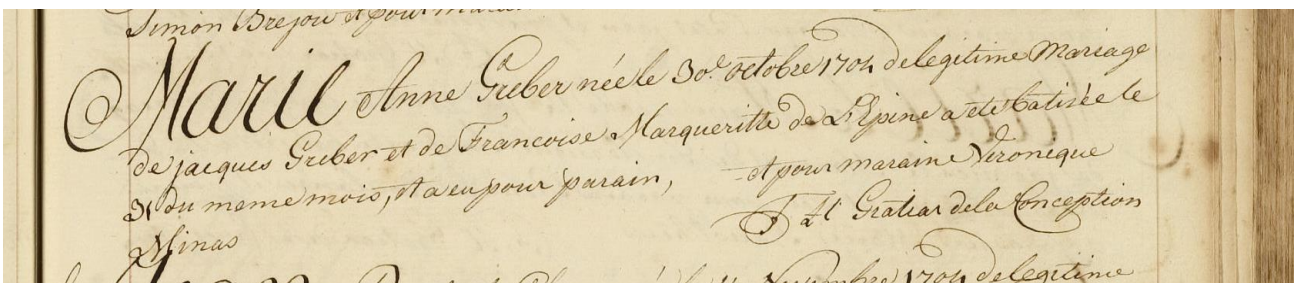 Simon Brejou et pour
Marie Anne Greber née le 30.e octobre 1704 de legitime Mariage
de jacques Greber et de Francoise Margueritte de L'Epine a ete batisée le
31 du meme mois, et a eu pour parain, - et pour maraine Veronique
Minas F At Gratias de la Conception
1704 de legitime